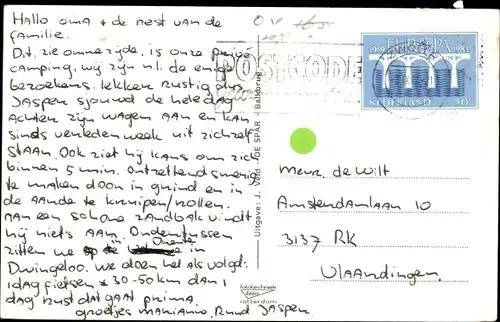 Hallo oma + de rest van de
familie.
Dit, zie ommezijde, is onze privé
camping, wij zijn n.l. de enige
bezoekers. Lekker rustig dus
Jasper sjouwd de hele dag
achter zijn wagen aan en kan
sinds verleden week uit zichzelf
staan. Ook ziet hij kans om zich
binnen 5 min. ontzettend smerig
te maken door in grind en in
de aarde te kruipen/rollen.
aan een schone zandbak vindt
hij niets aan. Ondertussen
zitten we in Drente in
Dwingeloo. we doen het als volgt:
1 dag fietsen ± 30-50 km dan 1
dag rust dat gaat prima.
groetjes Marianne, Ruud Jasper
Uitgave: J. Veld - DE SPAR - Balkbrug
fototechniek
rotterdam
O V
POSTCODE
EUROPA
1959 1984
NEDERLAND 50c
Meur. de Wilt
Amsterdamlaan 10
3137 RK
Vlaardingen.